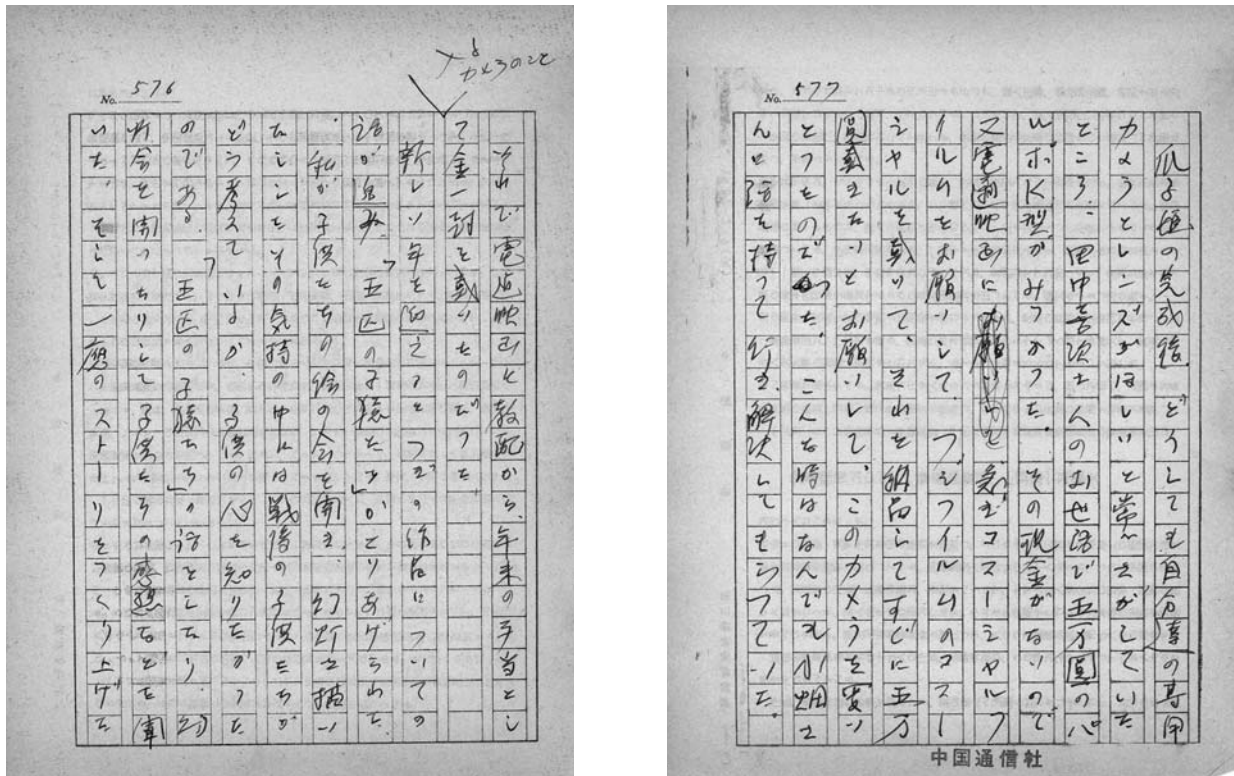 カメラのこと
No. 576
それで電通映画と教配から、年末の手当とし
て金一封を戴いたのだった
新しい年を迎えるとつぎの作品についての
話が進み、「五匹の子猿たち」がとりあげられた
、私が子供たちの絵の会を開き、幻灯を描い
たりしたその気持の中には戦後の子供たちが
どう考えているか、子供の心を知りたかった
のである。「五匹の子猿たち」の話をしたり 幻
灯会を開いたりして子供たちの感想などを聞
いた、そして一應のストーリーをつくり上げた
No. 577
瓜子姫の完成後、どうしても自分達の専用
カメラとレンズがほしいと常々さがしていた
ところ、田中喜次さんのお世話で五万圓のパ
ルボK型がみつかった。その現金がないので
又電通映画に 急ぎコマーシャルフ
イルムをお願いして、フジフイルムのコマー
シャルを戴いて、それを納品してすぐに五万
圓戴きたいとお願いして、このカメラを買い
とったのであった。こんな時はなんでも小畑さ
んに話を持って行き、解決してもらっていた。
中国通信社